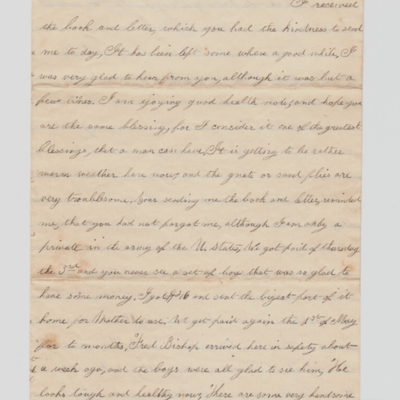 I received
the book and letter, which you had the kindness to send
me to day, It has bien left some where a good while, I
was very glad to hear from you, although it was but a
few lines. I am ejoying good health note, and hope you
are the same blessing, for I consider it one of the greatest
blessings, that a man can have, It is getting to be rather
warm weather here now, and the gnats or sand flies are
very troublesome. Your sending me the book and letter, reminded
me, that you had not forgot me, although I am only a
private in the army of the U. States, We got paid of thursday
the 3rd and you never see a set of boys that was so glad to
have some money. I got $16 and sent the bigest part of it
home for Mother to use. We get paid again the 1st of May
for to months, Fred Bishop arrived here in safety about
a week ago, and the boys were all glad to see him, He
looks tough and healthy now, There are some very handsome